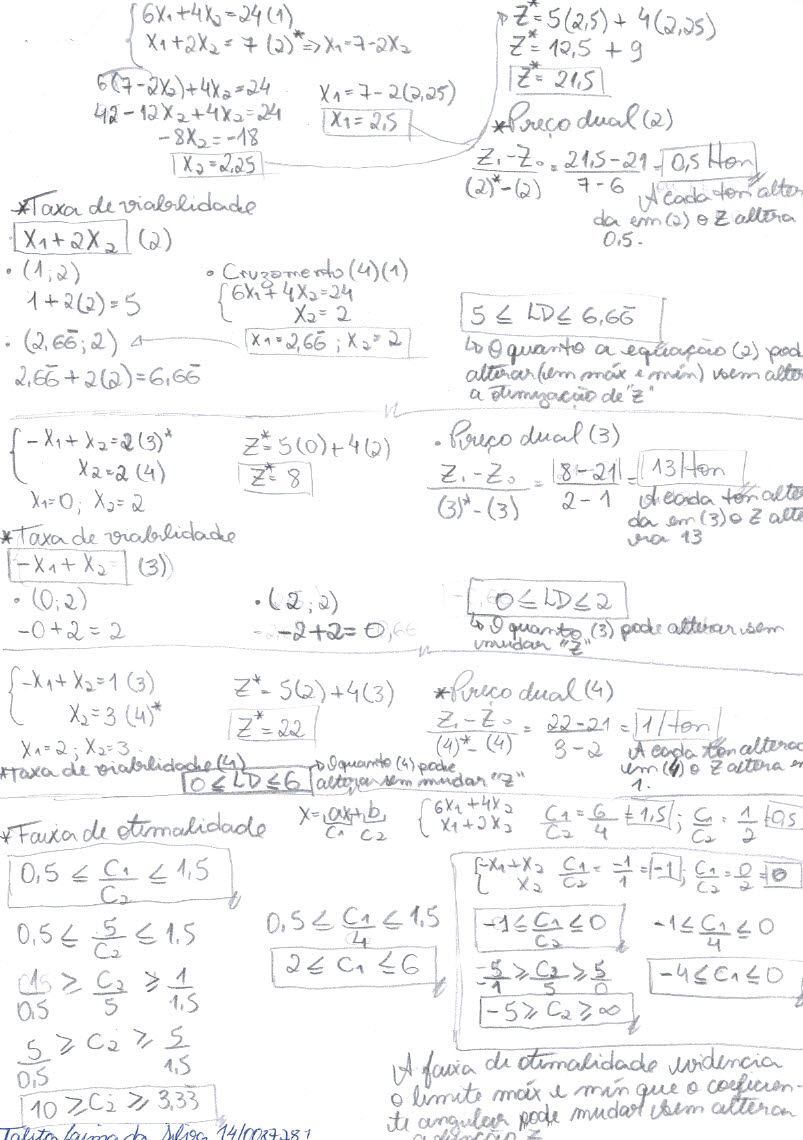 6X1+4X2=24 (1)
X1+2X2=7 (2)* => X1=7-2X2
6(7-2X2)+4X2=24
42-12X2+4X2=24
-8X2=-18
X2=2,25
X1=7-2(2,25)
X1=2,5
Z*=5(2,5)+4(2,25)
Z*=12,5+9
Z*=21,5
*Preço dual (2)
Z1-Z0/(2)*-(2) = 21,5-21/7-6 = 0,5/ton
A cada ton altera
da em (2) o Z altera
0,5.
*Taxa de viabilidade
X1+2X2 (2)
• (1;2)
1+2(2)=5
• (2,66;2)
2,66+2(2)=6,66
• Cruzamento (4)(1)
6X1+4X2=24
X2=2
X1=2,66; X2=2
5 ≤ LD ≤ 6,66
↳ O quanto a equação (2) pod
alterar (em máx e mín) sem alter
a otimização de "Z"
-X1+X2=2(3)*
X2=2 (4)
X1=0; X2=2
Z*=5(0)+4(2)
Z*=8
• Preço dual (3)
Z1-Z0/(3)*-(3) = |8-21|/2-1 = 13/ton
A cada ton alte
da em (3) o Z alte
rra 13
*Taxa de viabilidade
-X1+X2 (3)
• (0;2)
-0+2=2
• (2;2)
-2+2=0
0 ≤ LD ≤ 2
↳ O quanto (3) pode alterar sem
mudar "Z"
-X1+X2=1 (3)
X2=3 (4)*
X1=2; X2=3
Z*=5(2)+4(3)
Z*=22
*Preço dual (4)
Z1-Z0/(4)*-(4) = 22-21/3-2 = 1/ton
A cada ton alterad
em (4) o Z altera e
1.
*Taxa de viabilidade (4)
0 ≤ LD ≤ 6
↳ O quanto (4) pode
alterar sem mudar "Z"
*Faixa de otimalidade
X=ax+b
C1 C2
6X1+4X2
X1+2X2
C1/C2=6/4=1,5; C1/C2=1/2=0,5
0,5 ≤ C1/C2 ≤ 1,5
0,5 ≤ 5/C2 ≤ 1,5
1/0,5 ≥ C2/5 ≥ 1/1,5
5/0,5 ≥ C2 ≥ 5/1,5
10 ≥ C2 ≥ 3,33
0,5 ≤ C1/4 ≤ 1,5
2 ≤ C1 ≤ 6
-X1+X2
X2
C1/C2=-1/1=-1; C1/C2=0/2=0
-1 ≤ C1/C2 ≤ 0
-5/-1 ≥ C2/5 ≥ 5/0
-5 ≥ C2 ≥ ∞
-1 ≤ C1/4 ≤ 0
-4 ≤ C1 ≤ 0
A faixa de otimalidade evidencia
o limite máx e mín que o coeficien-
te angular pode mudar sem alterar
a função Z
Talita da Silva 14/0037281